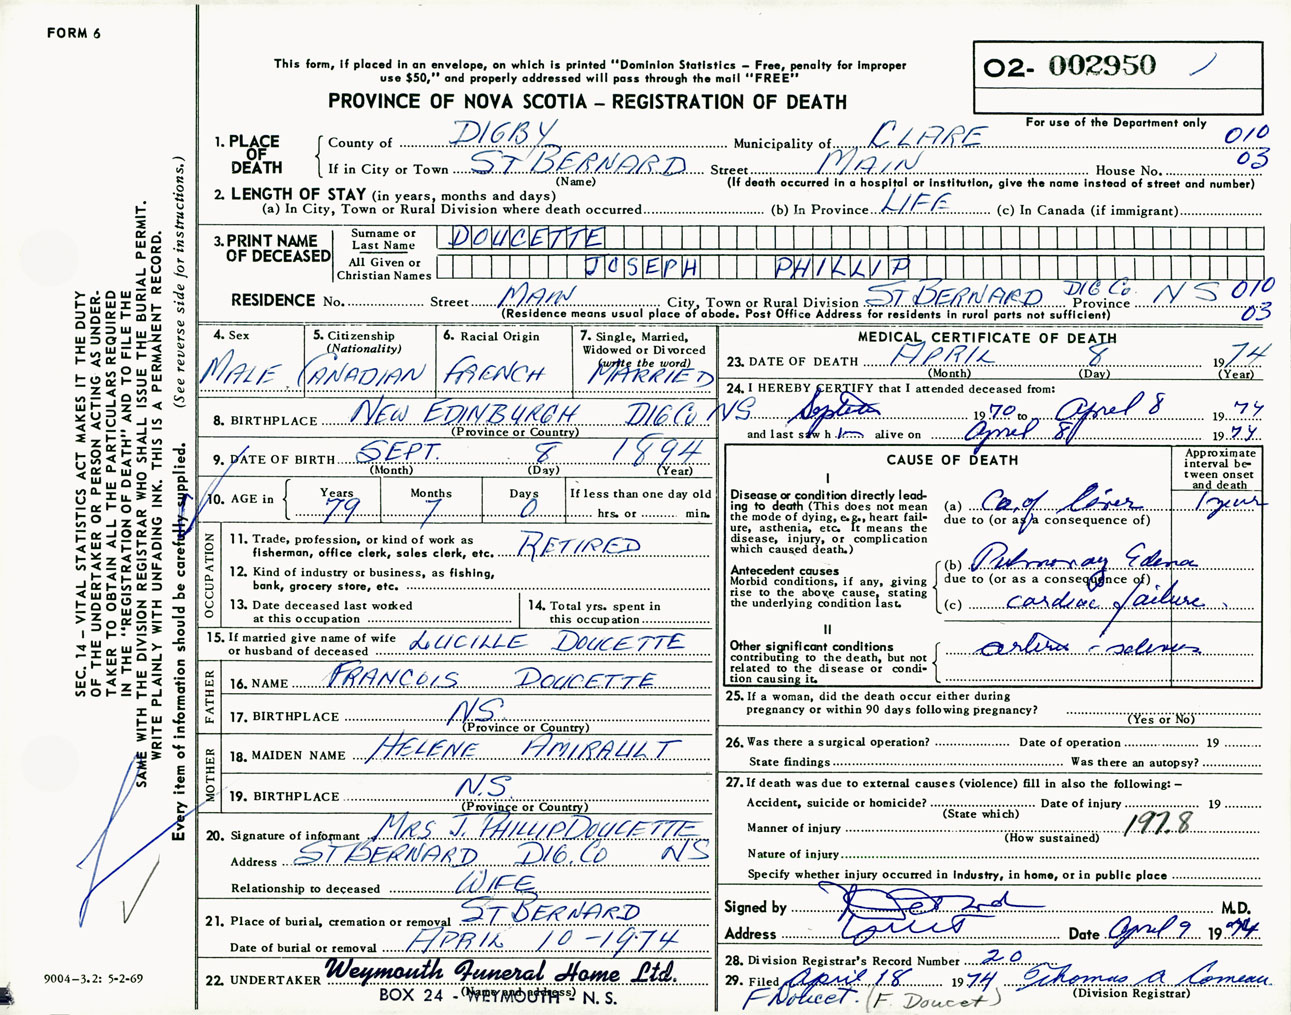 FORM 6
This form, if placed in an envelope, on which is printed "Dominion Statistics – Free, penalty for improper
use $50," and properly addressed will pass through the mail "FREE"
PROVINCE OF NOVA SCOTIA – REGISTRATION OF DEATH
02- 002950
For use of the Department only
010
03
1. PLACE OF DEATH
County of DIGBY Municipality of CLARE
If in City or Town ST BERNARD Street MAIN House No.
(Name) (If death occurred in a hospital or institution, give the name instead of street and number)
2. LENGTH OF STAY (in years, months and days)
(a) In City, Town or Rural Division where death occurred (b) In Province LIFE (c) In Canada (if immigrant)
3. PRINT NAME OF DECEASED
Surname or Last Name DOUCETTE
All Given or Christian Names JOSEPH PHILLIP
RESIDENCE No. Street MAIN City, Town or Rural Division ST BERNARD DIG Co. Province NS 010
(Residence means usual place of abode. Post Office Address for residents in rural parts not sufficient) 03
4. Sex MALE
5. Citizenship (Nationality) CANADIAN
6. Racial Origin FRENCH
7. Single, Married, Widowed or Divorced (write the word) MARRIED
8. BIRTHPLACE NEW EDINBURGH DIG.Co NS
(Province or Country)
9. DATE OF BIRTH SEPT. 8 1894
(Month) (Day) (Year)
10. AGE in Years 79 Months 7 Days 0 If less than one day old hrs. or min.
OCCUPATION
11. Trade, profession, or kind of work as fisherman, office clerk, sales clerk, etc. RETIRED
12. Kind of industry or business, as fishing, bank, grocery store, etc.
13. Date deceased last worked at this occupation
14. Total yrs. spent in this occupation
15. If married give name of wife or husband of deceased LUCILLE DOUCETTE
FATHER
16. NAME FRANCOIS DOUCETTE
17. BIRTHPLACE NS.
(Province or Country)
MOTHER
18. MAIDEN NAME HELENE AMIRAULT
19. BIRTHPLACE N.S.
(Province or Country)
20. Signature of informant MRS J. PHILLIP DOUCETTE
Address ST BERNARD DIG.CO NS
Relationship to deceased WIFE
21. Place of burial, cremation or removal ST BERNARD
Date of burial or removal APRIL 10 - 1974
22. UNDERTAKER Weymouth Funeral Home Ltd.
(Name and address)
BOX 24 - WEYMOUTH - N. S.
MEDICAL CERTIFICATE OF DEATH
23. DATE OF DEATH APRIL 8 1974
(Month) (Day) (Year)
24. I HEREBY CERTIFY that I attended deceased from:
1970 to April 8 1974
and last saw him alive on April 8 1974
CAUSE OF DEATH
Approximate interval between onset and death
I
Disease or condition directly leading to death (This does not mean the mode of dying, e.g., heart failure, asthenia, etc. It means the disease, injury, or complication which caused death.)
(a) Ca of liver 1 year
due to (or as a consequence of)
Antecedent causes
Morbid conditions, if any, giving rise to the above cause, stating the underlying condition last.
(b) Pulmonary Edema
due to (or as a consequence of)
(c) cardiac failure
II
Other significant conditions
contributing to the death, but not related to the disease or condition causing it.
arterio-sclerosis
25. If a woman, did the death occur either during pregnancy or within 90 days following pregnancy?
(Yes or No)
26. Was there a surgical operation? Date of operation 19
State findings Was there an autopsy?
27. If death was due to external causes (violence) fill in also the following: –
Accident, suicide or homicide? Date of injury 19
(State which)
Manner of injury 197.8
(How sustained)
Nature of injury
Specify whether injury occurred in industry, in home, or in public place
Signed by M.D.
Address Date April 9 1974
28. Division Registrar's Record Number 20
29. Filed April 18 1974 Thomas A Comeau
(Division Registrar)
F Doucet. (F. Doucet)
SEC. 14 – VITAL STATISTICS ACT MAKES IT THE DUTY
OF THE UNDERTAKER OR PERSON ACTING AS UNDER-
TAKER TO OBTAIN ALL THE PARTICULARS REQUIRED
IN THE "REGISTRATION OF DEATH" AND TO FILE THE
SAME WITH THE DIVISION REGISTRAR WHO SHALL ISSUE THE BURIAL PERMIT.
WRITE PLAINLY WITH UNFADING INK. THIS IS A PERMANENT RECORD.
Every item of information should be carefully supplied. (See reverse side for instructions.)
9004–3.2: 5-2-69